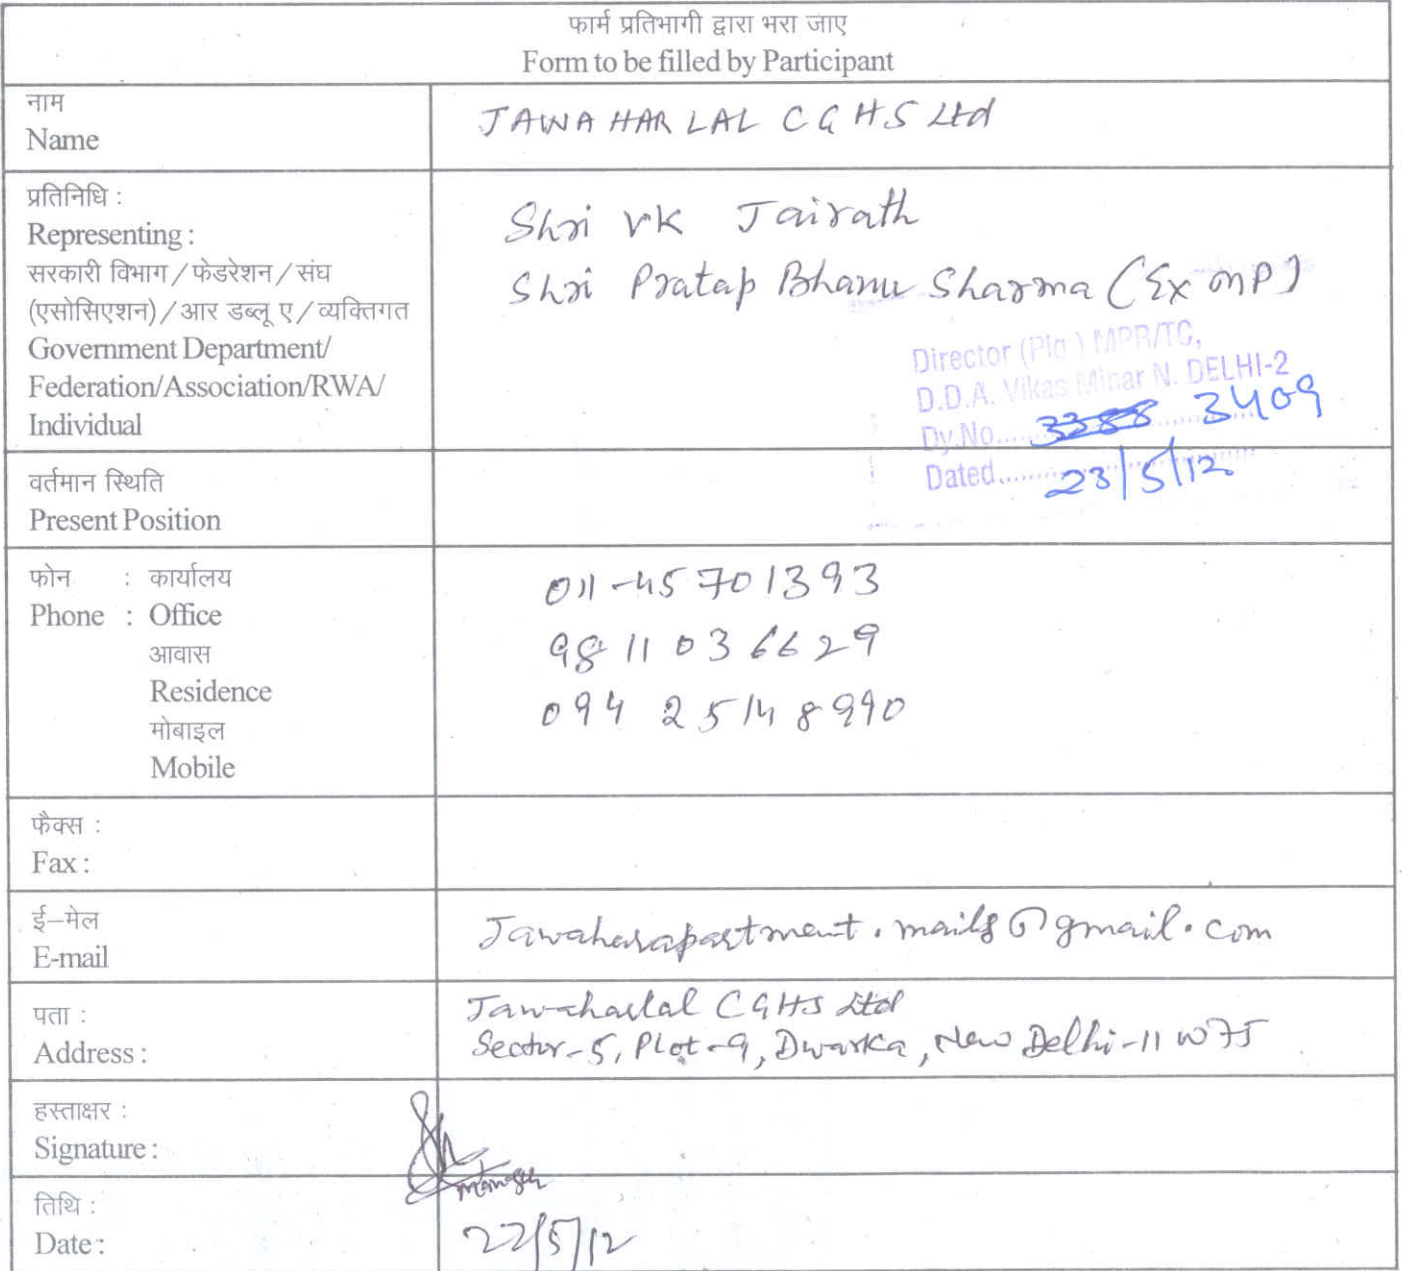 फार्म प्रतिभागी द्वारा भरा जाए
Form to be filled by Participant
नाम
Name
JAWAHARLAL CGHS Ltd
प्रतिनिधि :
Representing :
सरकारी विभाग/फेडरेशन/संघ
(एसोसिएशन)/आर डब्लू ए/व्यक्तिगत
Government Department/
Federation/Association/RWA/
Individual
Shri VK Jairath
Shri Pratap Bhanu Sharma (Ex MP)
Director (Plg.) MPR/TC,
D.D.A. Vikas Minar N. DELHI-2
Dy.No..... 3388 3409
Dated........ 23/5/12
वर्तमान स्थिति
Present Position
फोन : कार्यालय
Phone : Office
आवास
Residence
मोबाइल
Mobile
011-45701393
9811036629
09425148990
फैक्स :
Fax :
ई–मेल
E-mail
Jawaharapartment.mails@gmail.com
पता :
Address :
Jawaharlal CGHS Ltd
Sector-5, Plot-9, Dwarka, New Delhi-110075
हस्ताक्षर :
Signature :
Manager
तिथि :
Date :
22/5/12